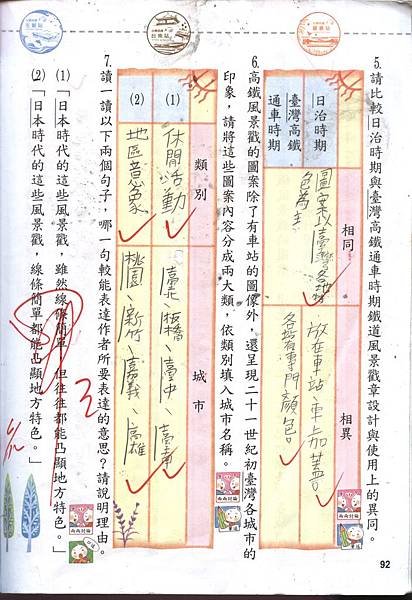 5. 請比較日治時期與臺灣高鐵通車時期鐵道風景戳章設計與使用上的異同。
相同
相異
日治時期
臺灣高鐵
通車時期
圖案以臺灣各地特
色為主
放在車站、車加蓋
各站有專門顏色。
6. 高鐵風景戳的圖案除了有車站的圖像外，還呈現二十一世紀初臺灣各城市的
印象，請將這些圖案內容分成兩大類，依類別填入城市名稱。
類別
城市
(1) 休閒活動
臺北、板橋、臺中、臺南
(2) 地區意象
桃園、新竹、嘉義、高雄
7. 讀一讀以下兩個句子，哪一句較能表達作者所要表達的意思？請說明理由。
(1)「日本時代的這些風景戳，雖然線條簡單，但往往都能凸顯地方特色。」
(2)「日本時代的這些風景戳，線條簡單都能凸顯地方特色。」
92